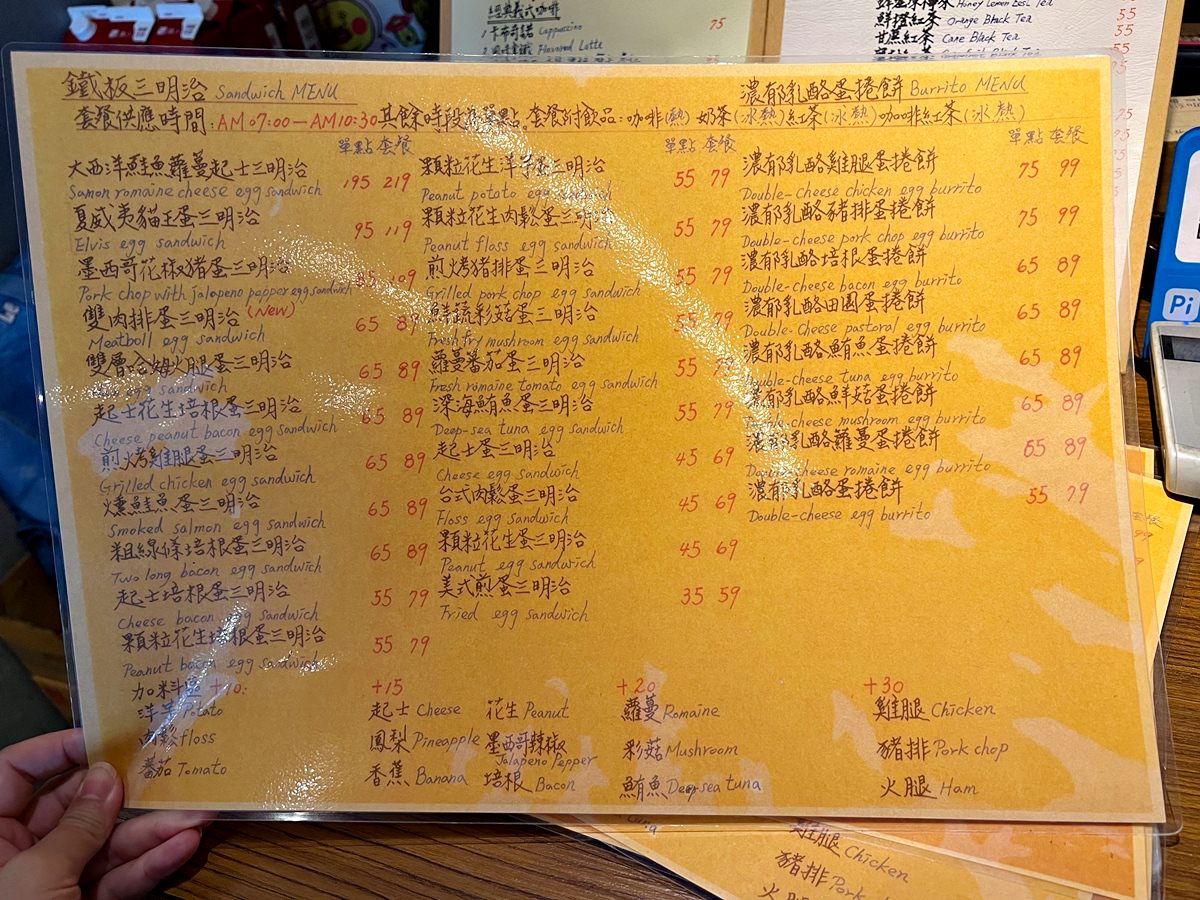 經典義式咖啡
1.卡布奇諾 Cappuccino 75
Flavored Latte
Honey Lemon
55
鮮橙紅茶 Orange Black Tea 55
甘蔗紅茶 Cane Black Tea 55
鐵板三明治 Sandwich MENU
濃郁乳酪蛋捲餅 Burrito MENU
套餐供應時間:AM 07:00—AM 10:30 其餘時段 單點。套餐附飲品:咖啡(熱) 奶茶(冰熱) 紅茶(冰熱) 咖啡紅茶(冰熱)
單點 套餐
大西洋鮭魚蘿蔓起士三明治 195 219
Samon romaine cheese egg sandwich
夏威夷貓王蛋三明治 95 119
Elvis egg sandwich
墨西哥花椒豬蛋三明治 85 109
Pork chop with jalapeno papper egg sandwich
雙肉排蛋三明治 (New) 65 89
Meatboll egg sandwich
雙層哈姆火腿蛋三明治 65 89
egg sandwich
起士花生培根蛋三明治 65 89
Cheese peanut bacon egg sandwich
煎烤雞腿蛋三明治 65 89
Grilled chicken egg sandwich
燻鮭魚蛋三明治 65 89
Smoked salmon egg sandwich
粗線條培根蛋三明治 65 89
Two long bacon egg sandwich
起士培根蛋三明治 55 79
Cheese bacon egg sandwich
顆粒花生培根蛋三明治 55 79
Peanut bacon egg sandwich
單點 套餐
顆粒花生洋芋蛋三明治 55 79
Peanut potato egg sandwich
顆粒花生肉鬆蛋三明治 55 79
Peanut floss egg sandwich
煎烤豬排蛋三明治 55 79
Grilled pork chop egg sandwich
鮮蔬彩菇蛋三明治 55 79
Fresh fry mushroom egg sandwich
蘿蔓蕃茄蛋三明治 55 79
Fresh romaine tomato egg sandwich
深海鮪魚蛋三明治 55 79
Deep-sea tuna egg sandwich
起士蛋三明治 45 69
Cheese egg sandwich
台式肉鬆蛋三明治 45 69
Floss egg sandwich
顆粒花生蛋三明治 45 69
Peanut egg sandwich
美式煎蛋三明治 35 59
Fried egg sandwich
單點 套餐
濃郁乳酪雞腿蛋捲餅 75 99
Double-cheese chicken egg burrito
濃郁乳酪豬排蛋捲餅 75 99
Double-cheese pork chop egg burrito
濃郁乳酪培根蛋捲餅 65 89
Double-cheese bacon egg burrito
濃郁乳酪田園蛋捲餅 65 89
Double-cheese pastoral egg burrito
濃郁乳酪鮪魚蛋捲餅 65 89
Double-cheese tuna egg burrito
濃郁乳酪鮮菇蛋捲餅 65 89
Double-cheese mushroom egg burrito
濃郁乳酪蘿蔓蛋捲餅 65 89
Double-cheese romaine egg burrito
濃郁乳酪蛋捲餅 55 79
Double-cheese egg burrito
加料區 +10:
洋芋 Potato
肉鬆 floss
蕃茄 Tomato
+15
起士 Cheese 花生 Peanut
鳳梨 Pineapple 墨西哥辣椒 Jalapeno Pepper
香蕉 Banana 培根 Bacon
+20
蘿蔓 Romaine
彩菇 Mushroom
鮪魚 Deep sea tuna
+30
雞腿 Chicken
豬排 Pork chop
火腿 Ham
Pi
雞腿 Chicken
豬排 Pork